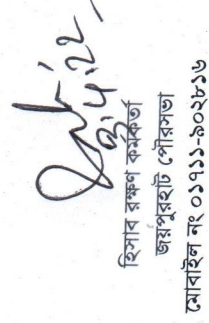 ২.৫.২২
হিসাব রক্ষণ কর্মকর্তা
জয়পুরহাট পৌরসভা
মোবাইল নং ০১৭১১-৯০২৮১৬